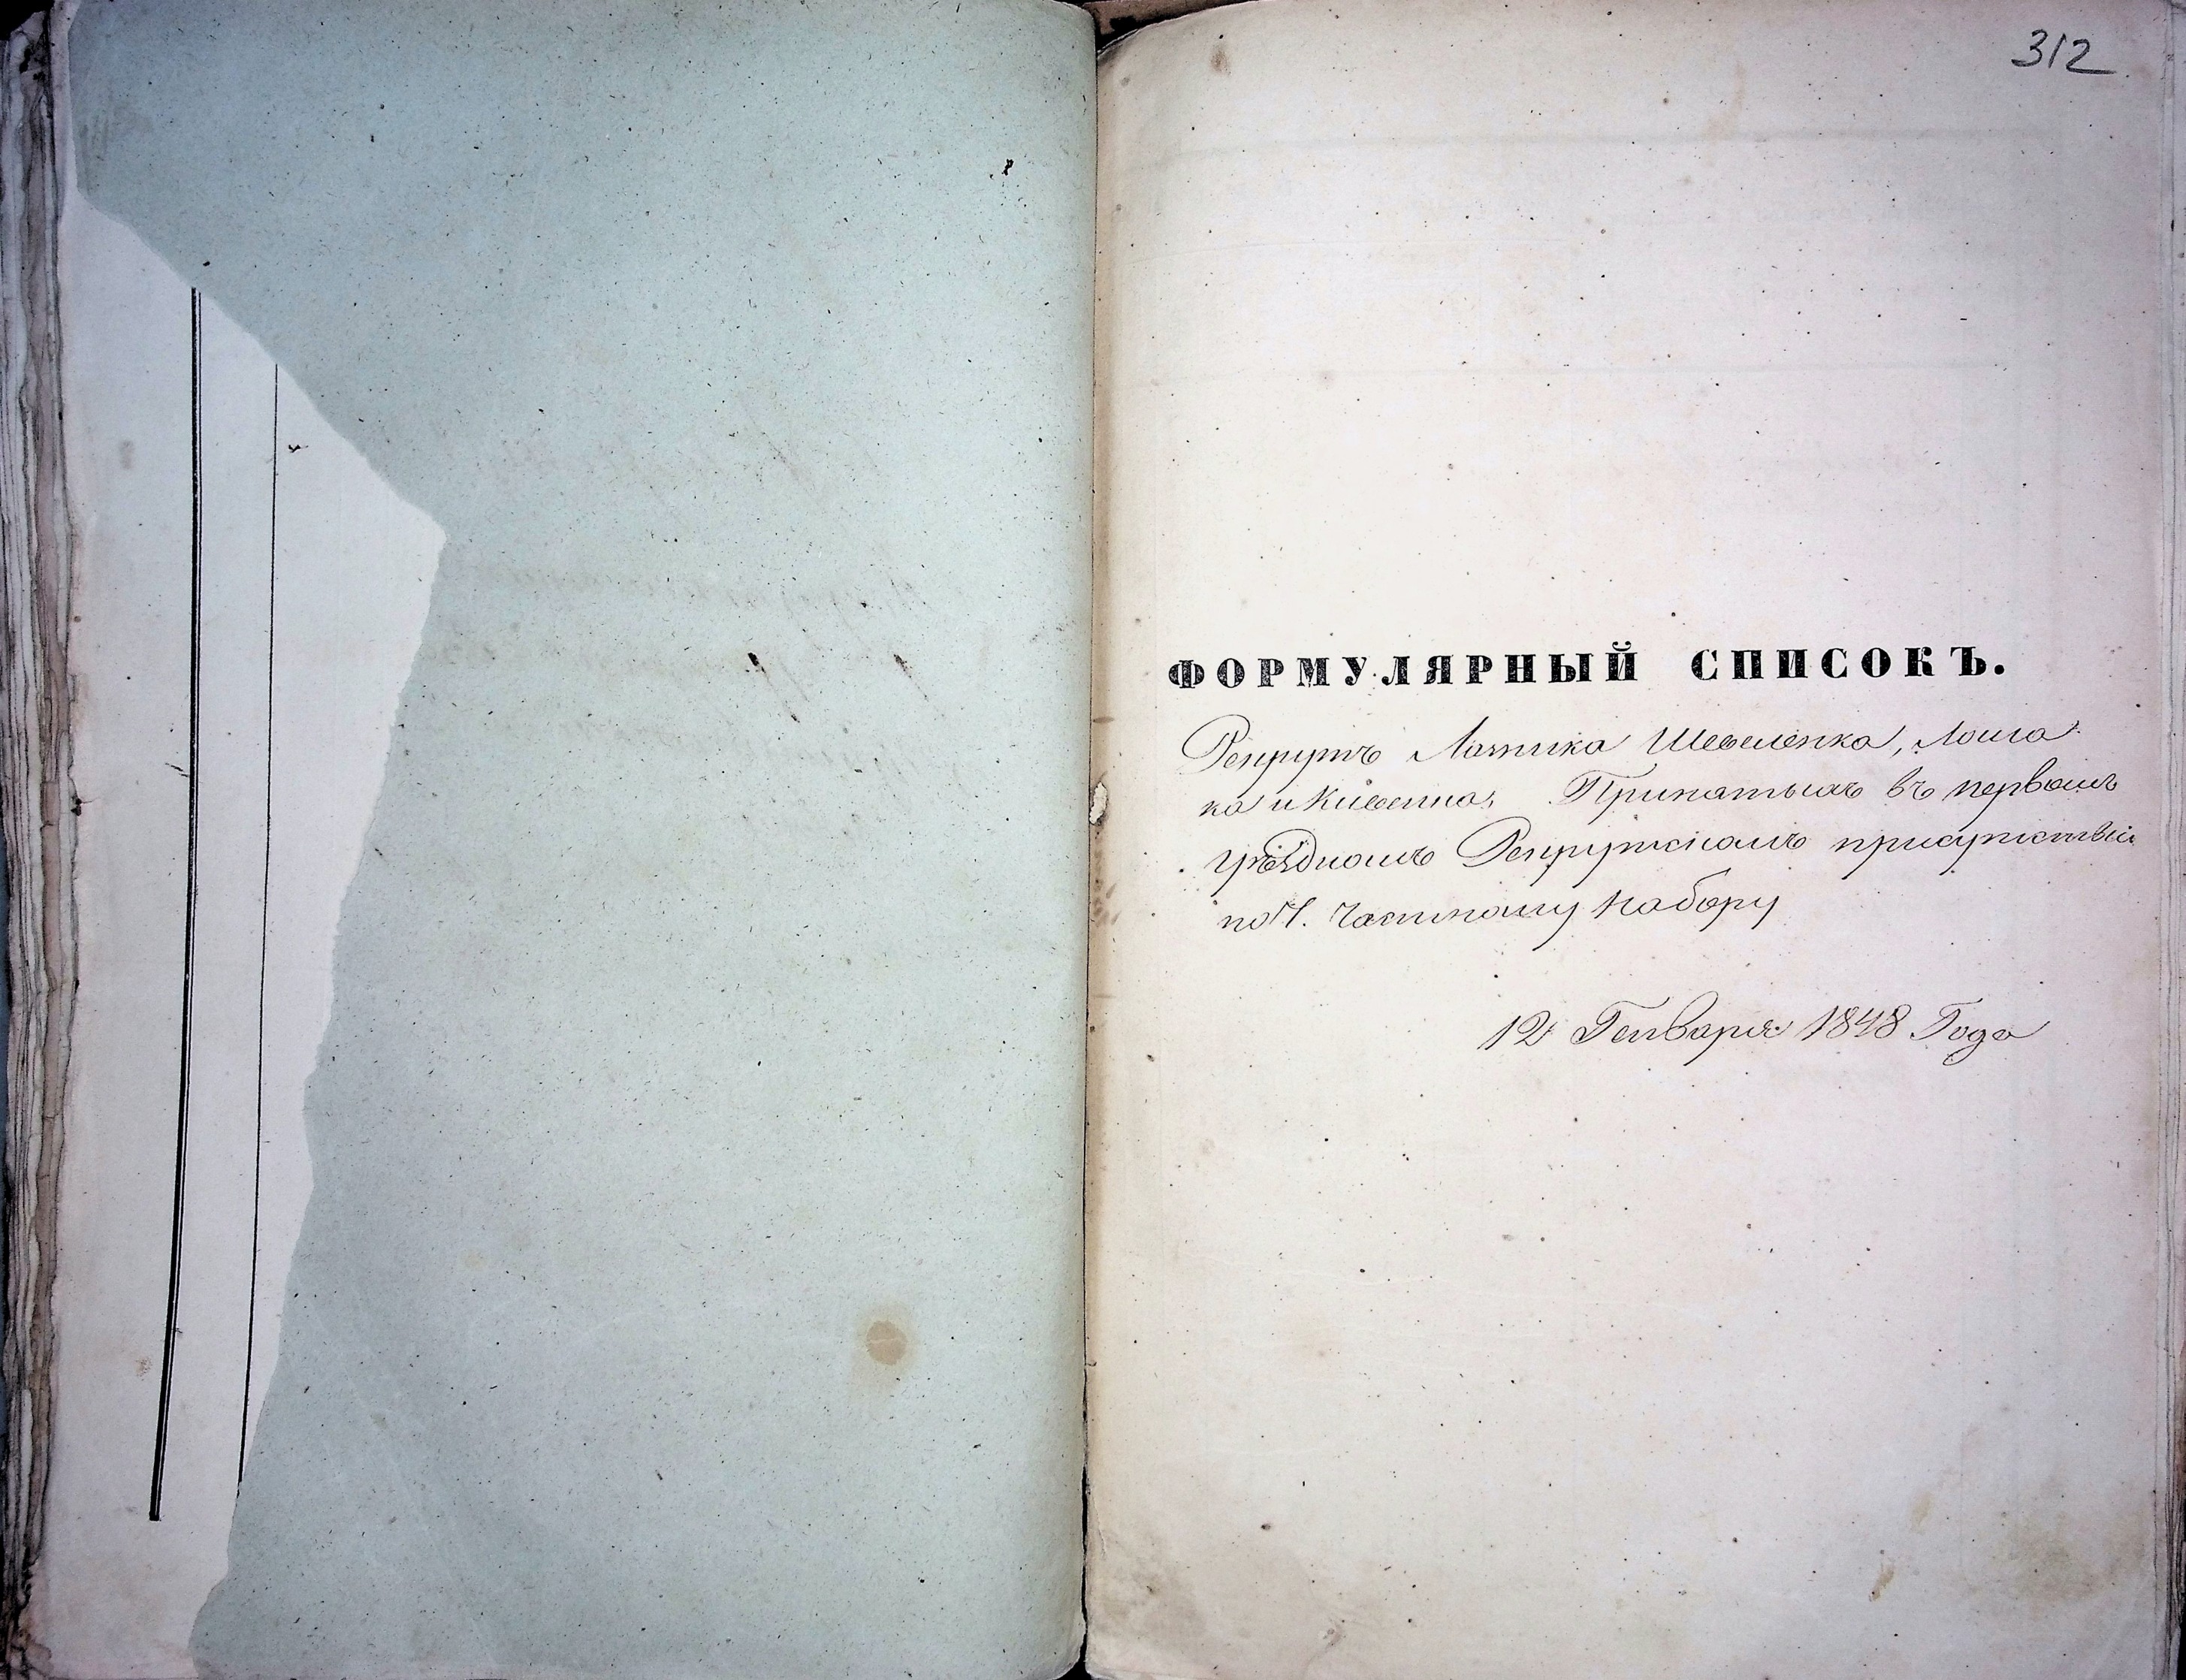 312
ФОРМУЛЯРНЫЙ СПИСОКЪ.
Рекрутъ Шевеленка,
ка и Принятыхъ въ первомъ
уѣздномъ Рекрутскомъ присутствіи
по частному набору
12 Генваря 1848 Года